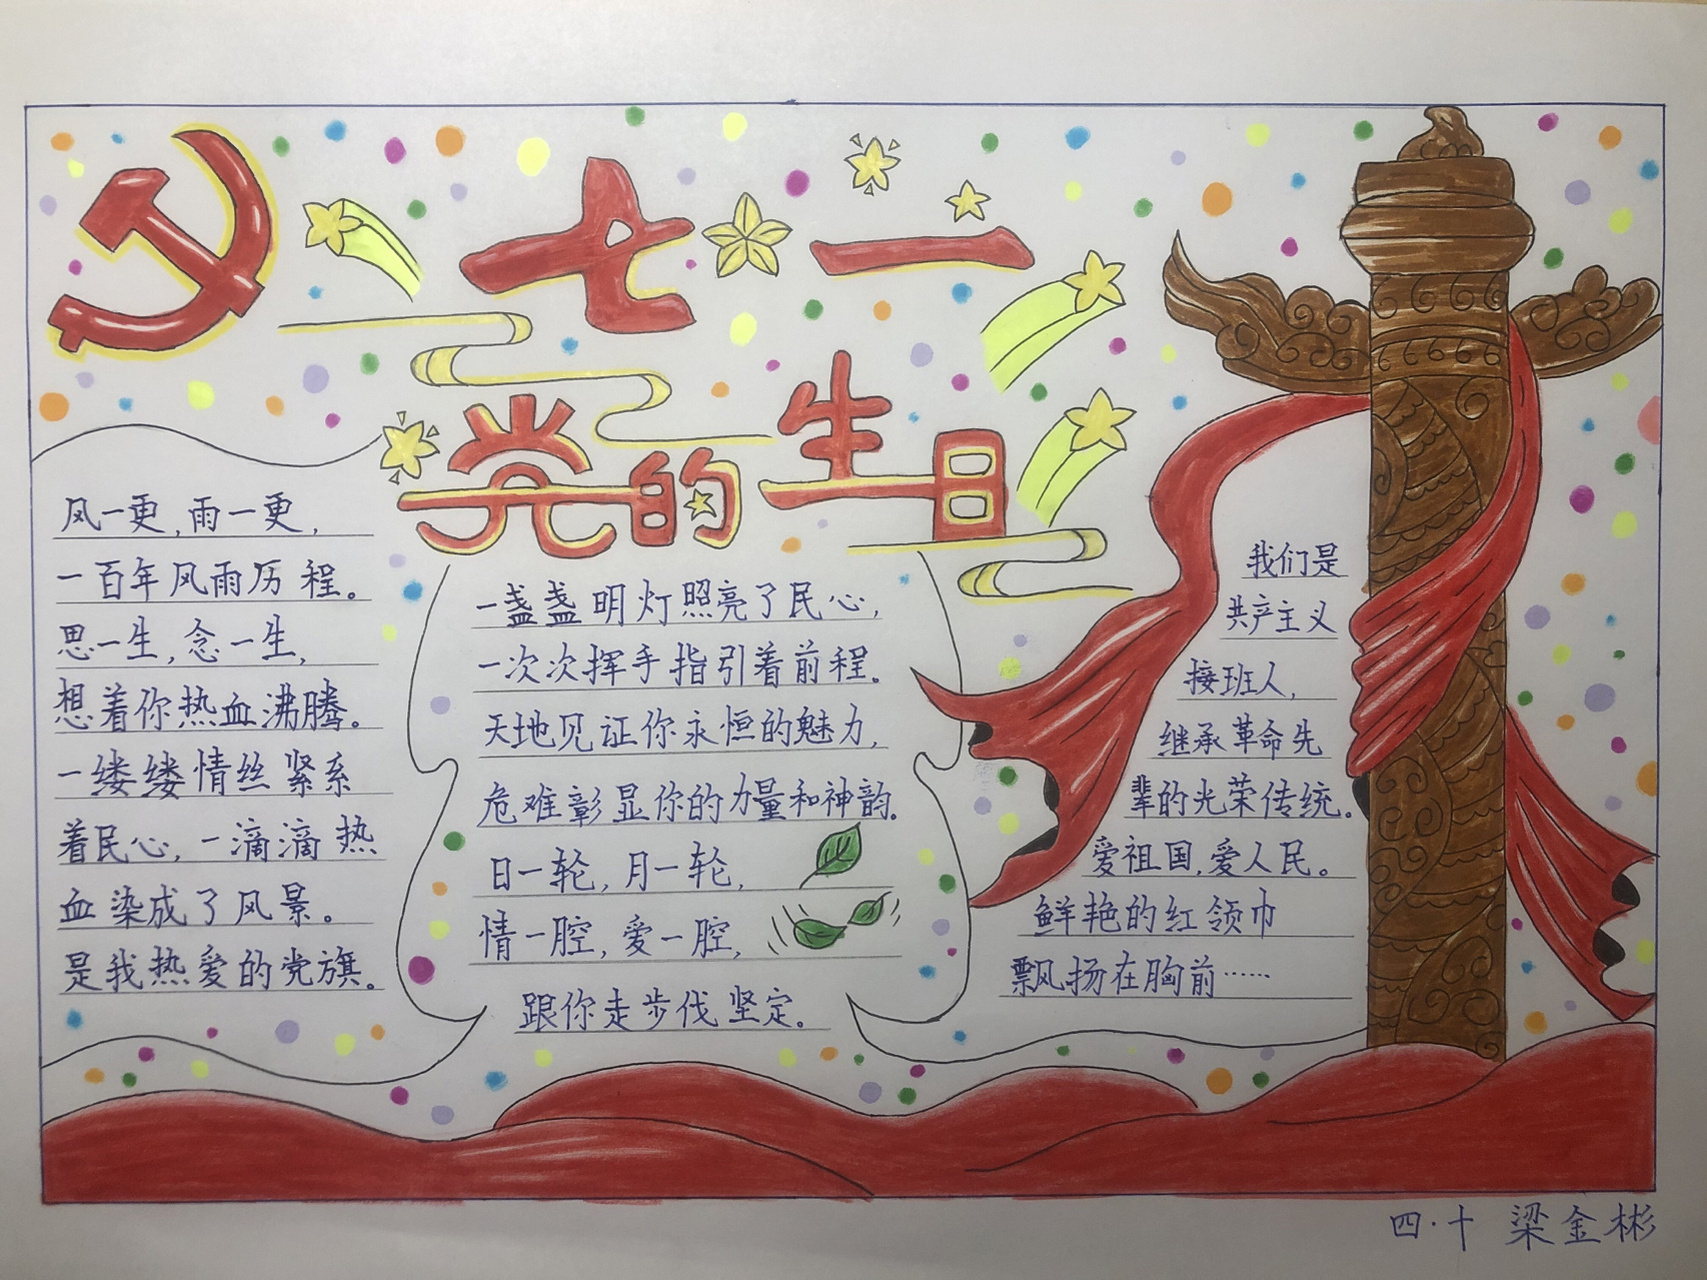 七一
党的生日
风一更,雨一更,
一百年风雨历程。
思一生,念一生,
想着你热血沸腾。
一缕缕情丝紧系
着民心,一滴滴热
血染成了风景。
是我热爱的党旗。
一盏盏明灯照亮了民心,
一次次挥手指引着前程。
天地见证你永恒的魅力,
危难彰显你的力量和神韵。
日一轮,月一轮,
情一腔,爱一腔,
跟你走步伐坚定。
我们是
共产主义
接班人,
继承革命先
辈的光荣传统。
爱祖国,爱人民。
鲜艳的红领巾
飘扬在胸前……
四·十 梁金彬